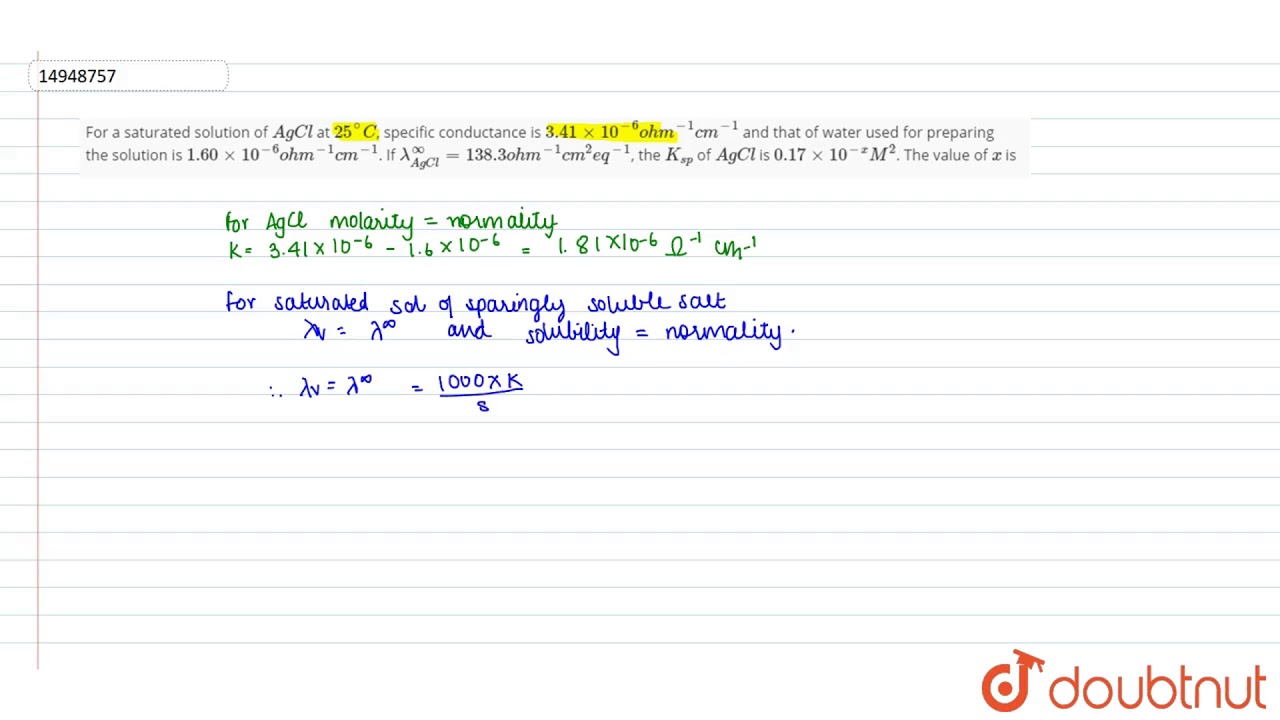 14948757
For a saturated solution of AgCl at 25°C, specific conductance is 3.41 × 10⁻⁶ohm⁻¹cm⁻¹ and that of water used for preparing
the solution is 1.60 × 10⁻⁶ohm⁻¹cm⁻¹. If λ∞AgCl = 138.3ohm⁻¹cm²eq⁻¹, the Ksp of AgCl is 0.17 × 10⁻ˣM². The value of x is
for AgCl molarity = normality
K = 3.41 × 10⁻⁶ - 1.6 × 10⁻⁶ = 1.81 × 10⁻⁶ Ω⁻¹ cm⁻¹
for saturated sol of sparingly soluble salt
λv = λ∞ and solubility = normality.
∴ λv = λ∞ = 1000 × K / s
doubtnut